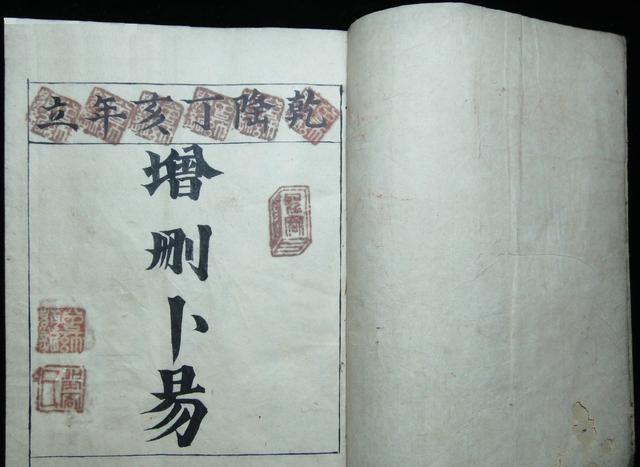 乾隆丁亥年立
增删卜易